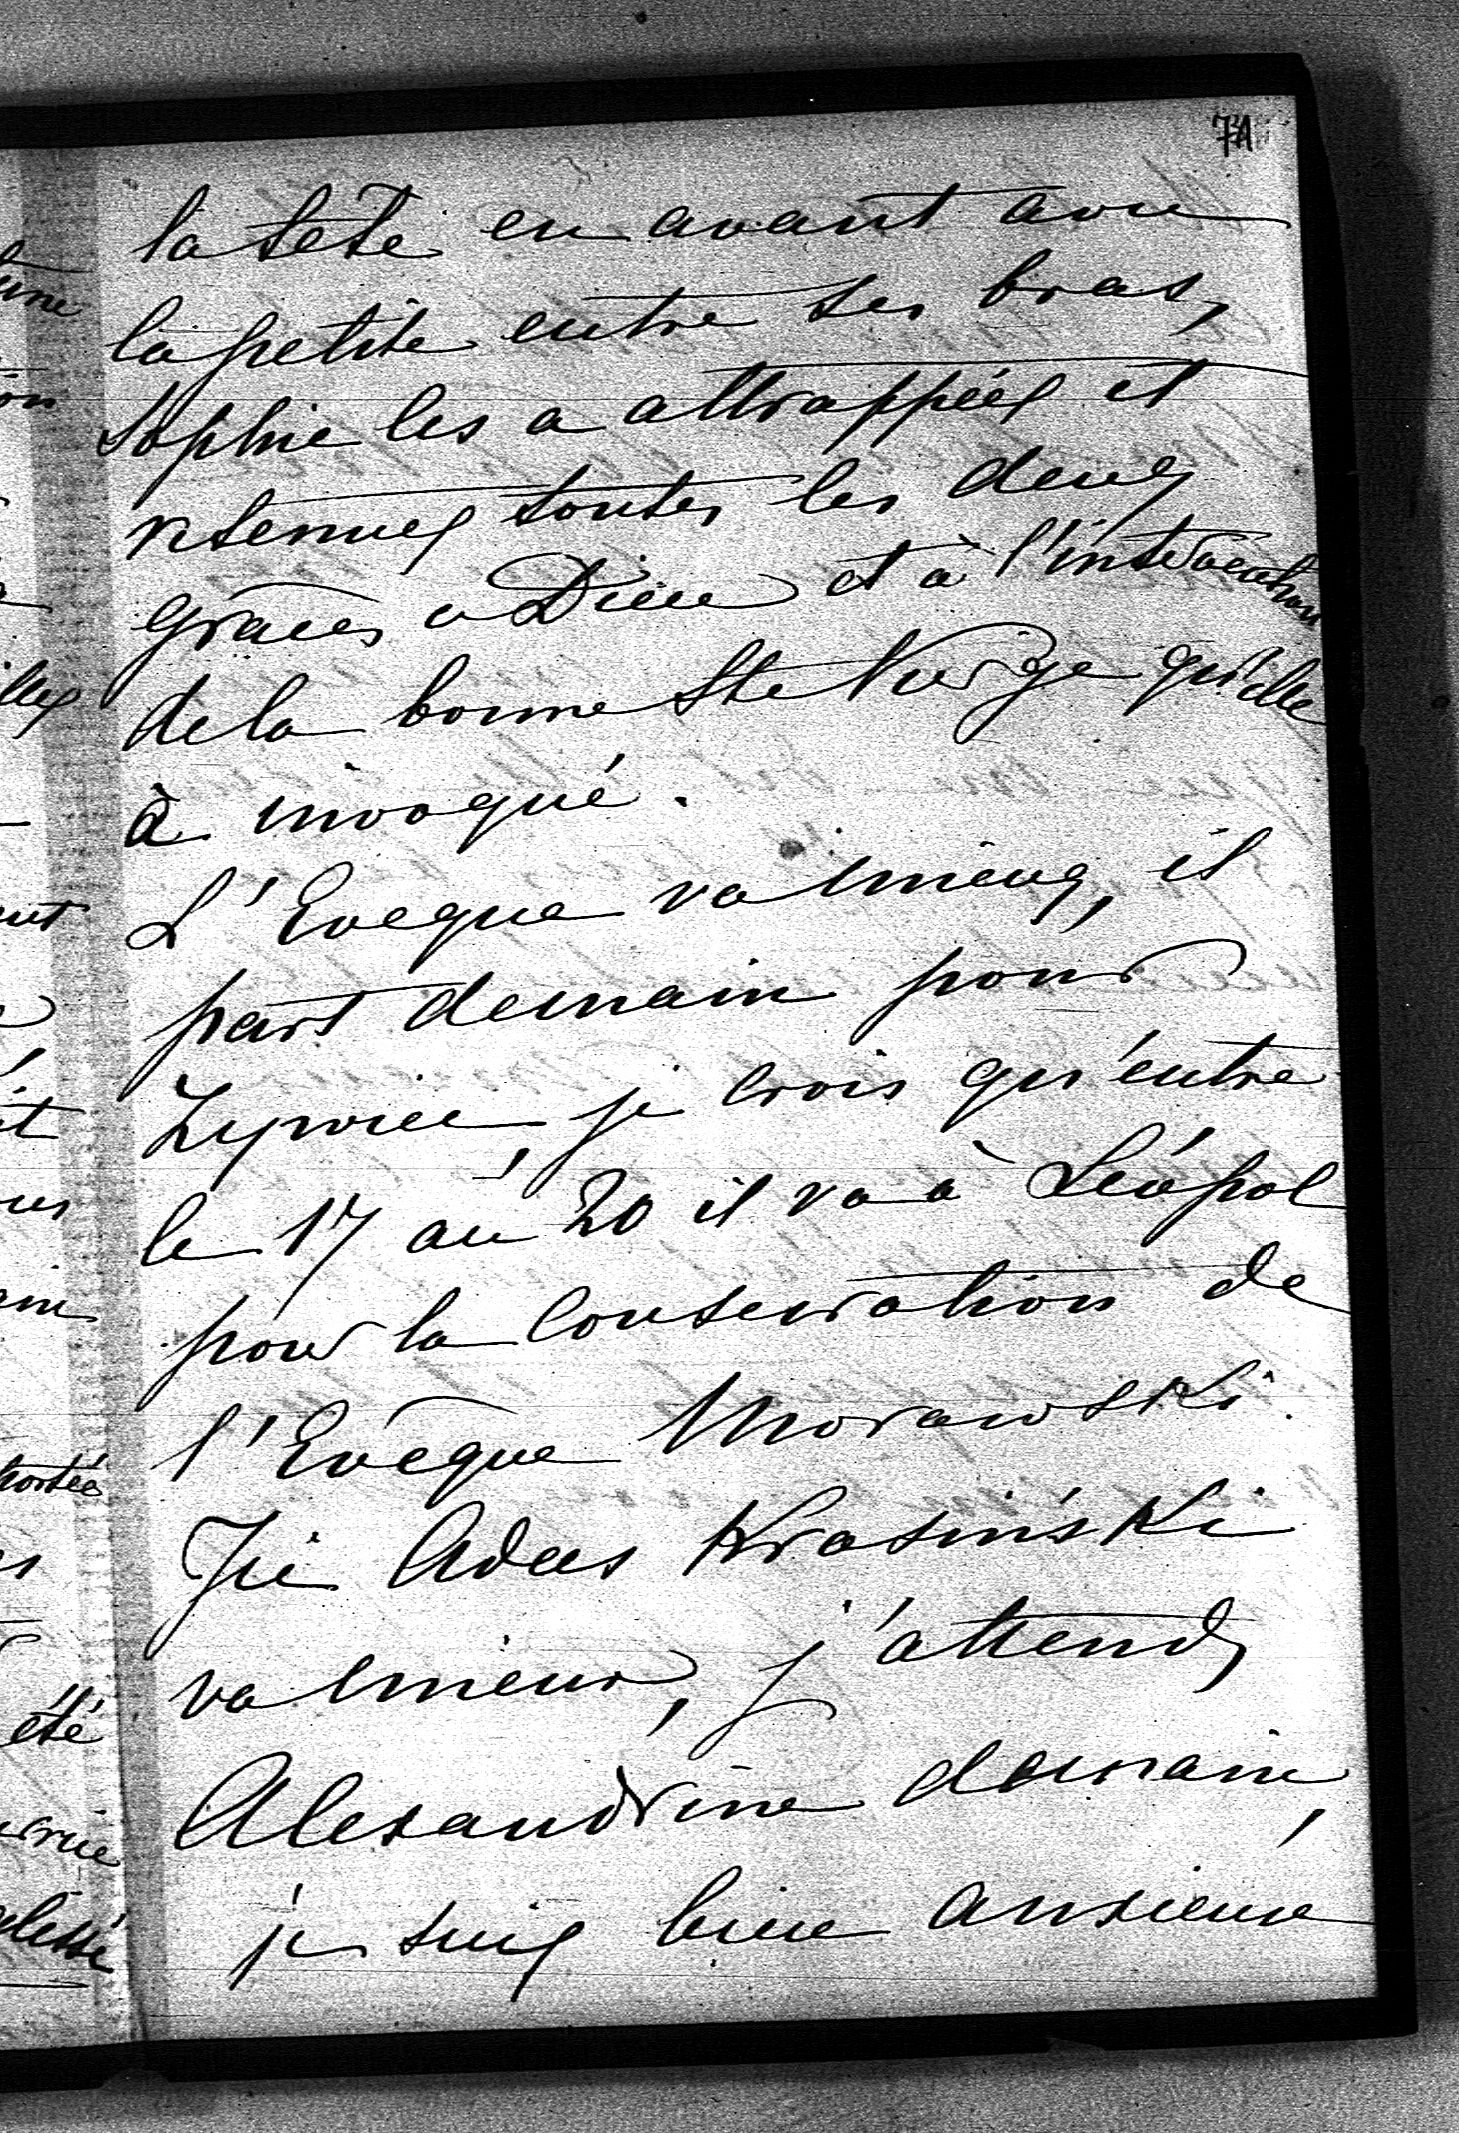 71
la tete en avant avec
la petite entre ses bras,
Sophie les a attrappées et
retenues toutes les deux
grâces a Dieu et à l'intervention
de la bonne Ste Vierge qu'elle
à invoqué.
L'Eveque va mieux, il
part demain pour
Zywiec, je crois qu'entre
le 17 au 20 il va à Léopol
pour la Conseration de
l'Evêque Morawski.
Ici Adas Krasiński
va mieux, j'attends
Alexandrine demain,
je suis bien anxieuse